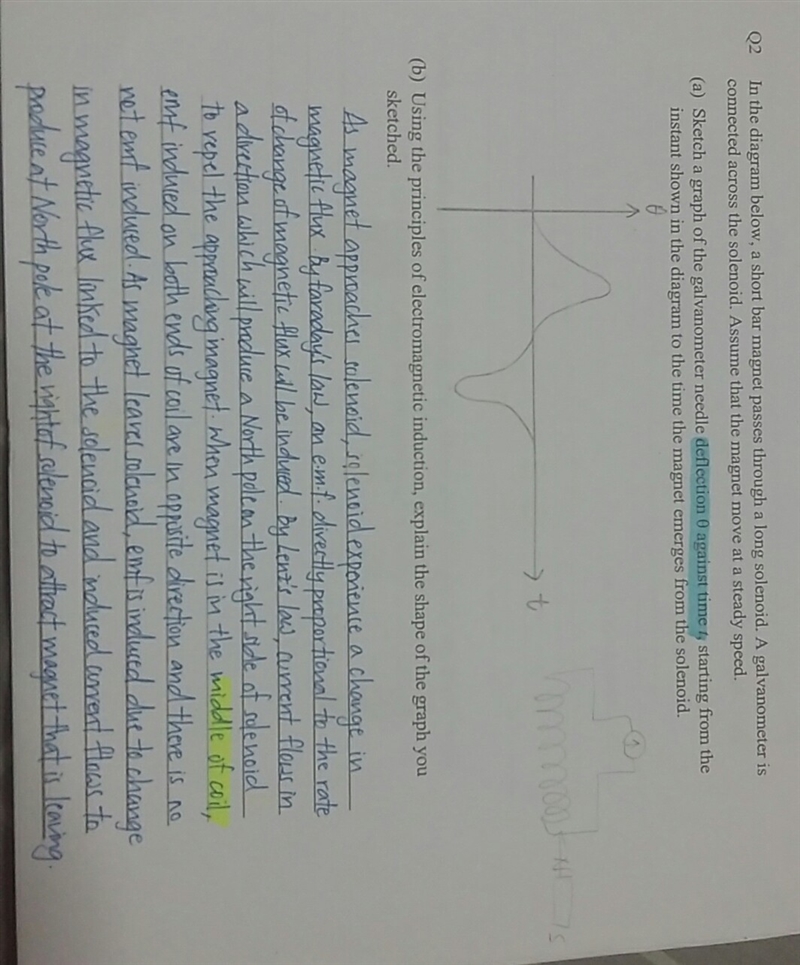 Q2 In the diagram below, a short bar magnet passes through a long solenoid. A galvanometer is
connected across the solenoid. Assume that the magnet move at a steady speed.
(a) Sketch a graph of the galvanometer needle deflection θ against time t, starting from the
instant shown in the diagram to the time the magnet emerges from the solenoid.
θ
t
N
S
(b) Using the principles of electromagnetic induction, explain the shape of the graph you
sketched.
As magnet approaches solenoid, solenoid experience a change in
magnetic flux. By faraday's law, an e.m.f. directly proportional to the rate
of change of magnetic flux will be induced. By Lenz's law, current flows in
a direction which will produce a North pole on the right side of solenoid
to repel the approaching magnet. When magnet is in the middle of coil,
emf induced on both ends of coil are in opposite direction and there is no
net emf induced. As magnet leaves solenoid, emf is induced due to change
in magnetic flux linked to the solenoid and induced current flows to
produce at North pole at the right of solenoid to attract magnet that is leaving.